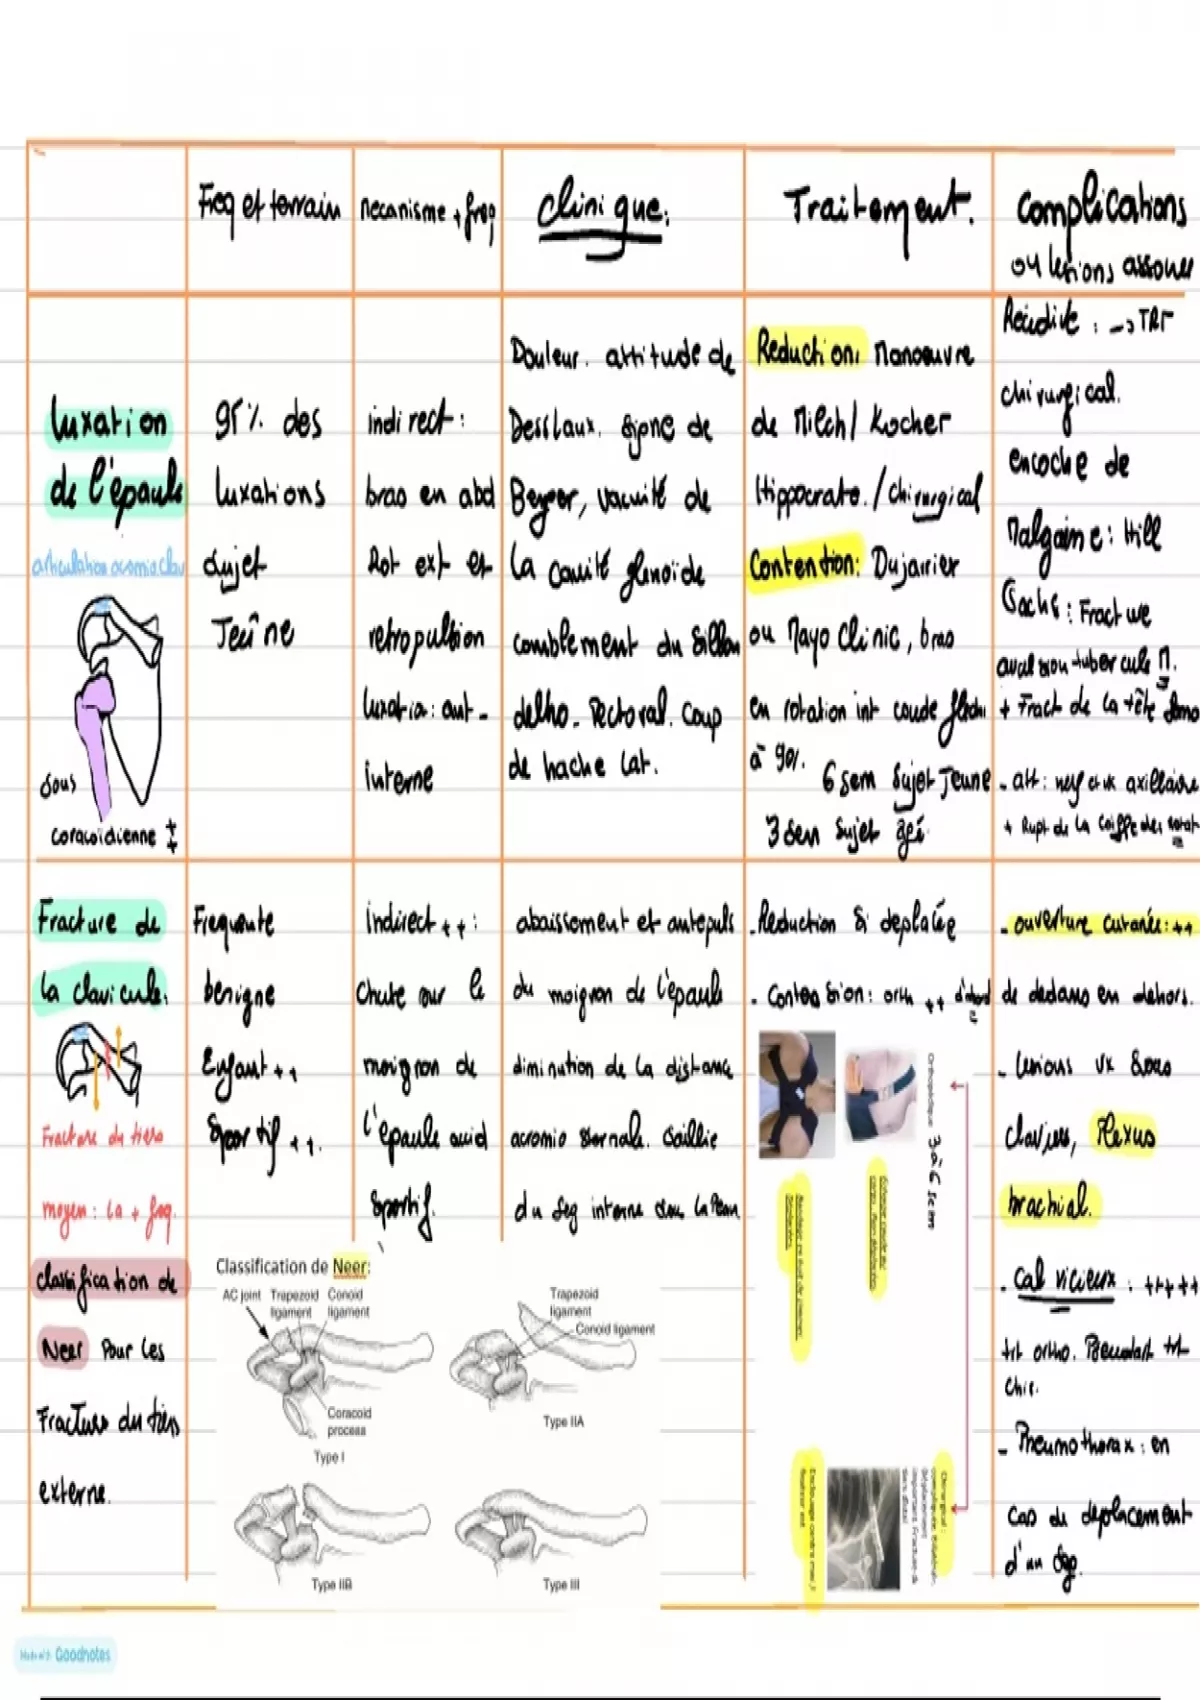 Freq et terrain
mecanisme + freq
Clinique:
Traitement.
Complications
ou lesions associes
Luxation
de l'épaule
articulation acromio clav
Sous
coracoïdienne ++
95% des
luxations
Sujet
Jeûne
indirect:
bras en abd
Rot ext et
retropulsion
luxatio: ant-
interne
Douleur. attitude de
Dessaux. Signe de
Berger, vacuité de
la cavité glenoïde
comblement du sillon
delto-Pectoral. Coup
de hache Lat.
Reduction: Manoeuvre
de Milch / Kocher
Hippocrate. / chirurgical
Contention: Dujarrier
ou Mayo Clinic, bras
en rotation int coude flechi
à 90%.
6 sem Sujet Jeune
3 Sem Sujet agé.
Recidive: -> TRT
chirurgical.
encoche de
Malgaine: Hill
Sachs: Fracture
avulsion tubercule M.
+ Fract de la tête
- att: nerf axillaire
+ Rupt de la coiffe des rotat
Fracture de
la clavicule.
Fracture du tiers
moyen: la + freq.
classification de
Neer Pour les
Fracture du tiers
externe.
Frequente
benigne
Enfant ++
Sportif ++.
Indirect ++:
Chute sur le
moignon de
l'épaule
Sportif.
abaissement et antepuls
du moignon de l'épaule
diminution de la distance
acromio sternale. Saillie
du Seg interne sous la Peau
- Reduction Si deplacée
- Contension: orth ++ d'abord
Orthopédique 3 à 6 sem
Chirurgical:
- ouverture cutanée: ++
de dedans en dehors.
- lesions vx Sous
claviers, Plexus
brachial.
- Cal vicieux: +++++
trt ortho. Pseudart trt
Chir.
- Pneumothorax: en
cas de deplacement
d'un Seg.
Classification de Neer:
AC joint
Trapezoid ligament
Conoid ligament
Coracoid process
Type I
Trapezoid ligament
Conoid ligament
Type IIA
Type IIB
Type III
Made with Goodnotes